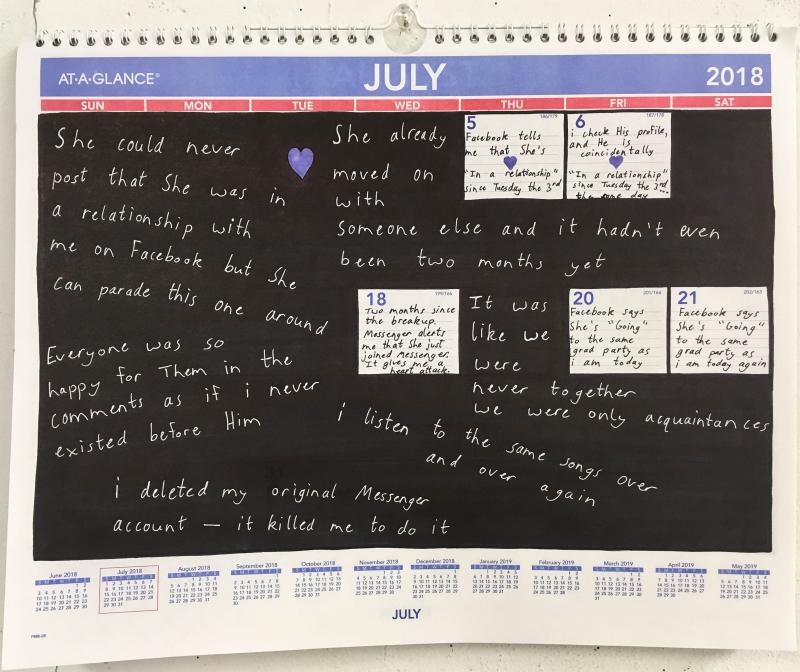 AT-A-GLANCE®
JULY
2018
SUN MON TUE WED THU FRI SAT
She could never
post that She was in
a relationship with
me on Facebook but She
can parade this one around
Everyone was so
happy for Them in the
comments as if i never
existed before Him
She already
moved on
with
someone else and it hadn't even
been two months yet
5
186/179
Facebook tells
me that She's
"In a relationship"
since Tuesday the 3rd
6
187/178
i check His profile,
and He is
coincidentally
"In a relationship"
since Tuesday the 3rd
the same day...
18
199/166
Two months since
the breakup.
Messenger alerts
me that She just
joined Messenger.
It gives me a
heart attack.
It was
like we
were
never together
we were only acquaintances
20
201/164
Facebook says
She's "Going"
to the same
grad party as
i am today
21
202/163
Facebook says
She's "Going"
to the same
grad party as
i am today again
i listen to the same songs over
and over again
i deleted my original Messenger
account — it killed me to do it
June 2018
July 2018
August 2018
September 2018
October 2018
November 2018
December 2018
January 2019
February 2019
March 2019
April 2019
May 2019
JULY